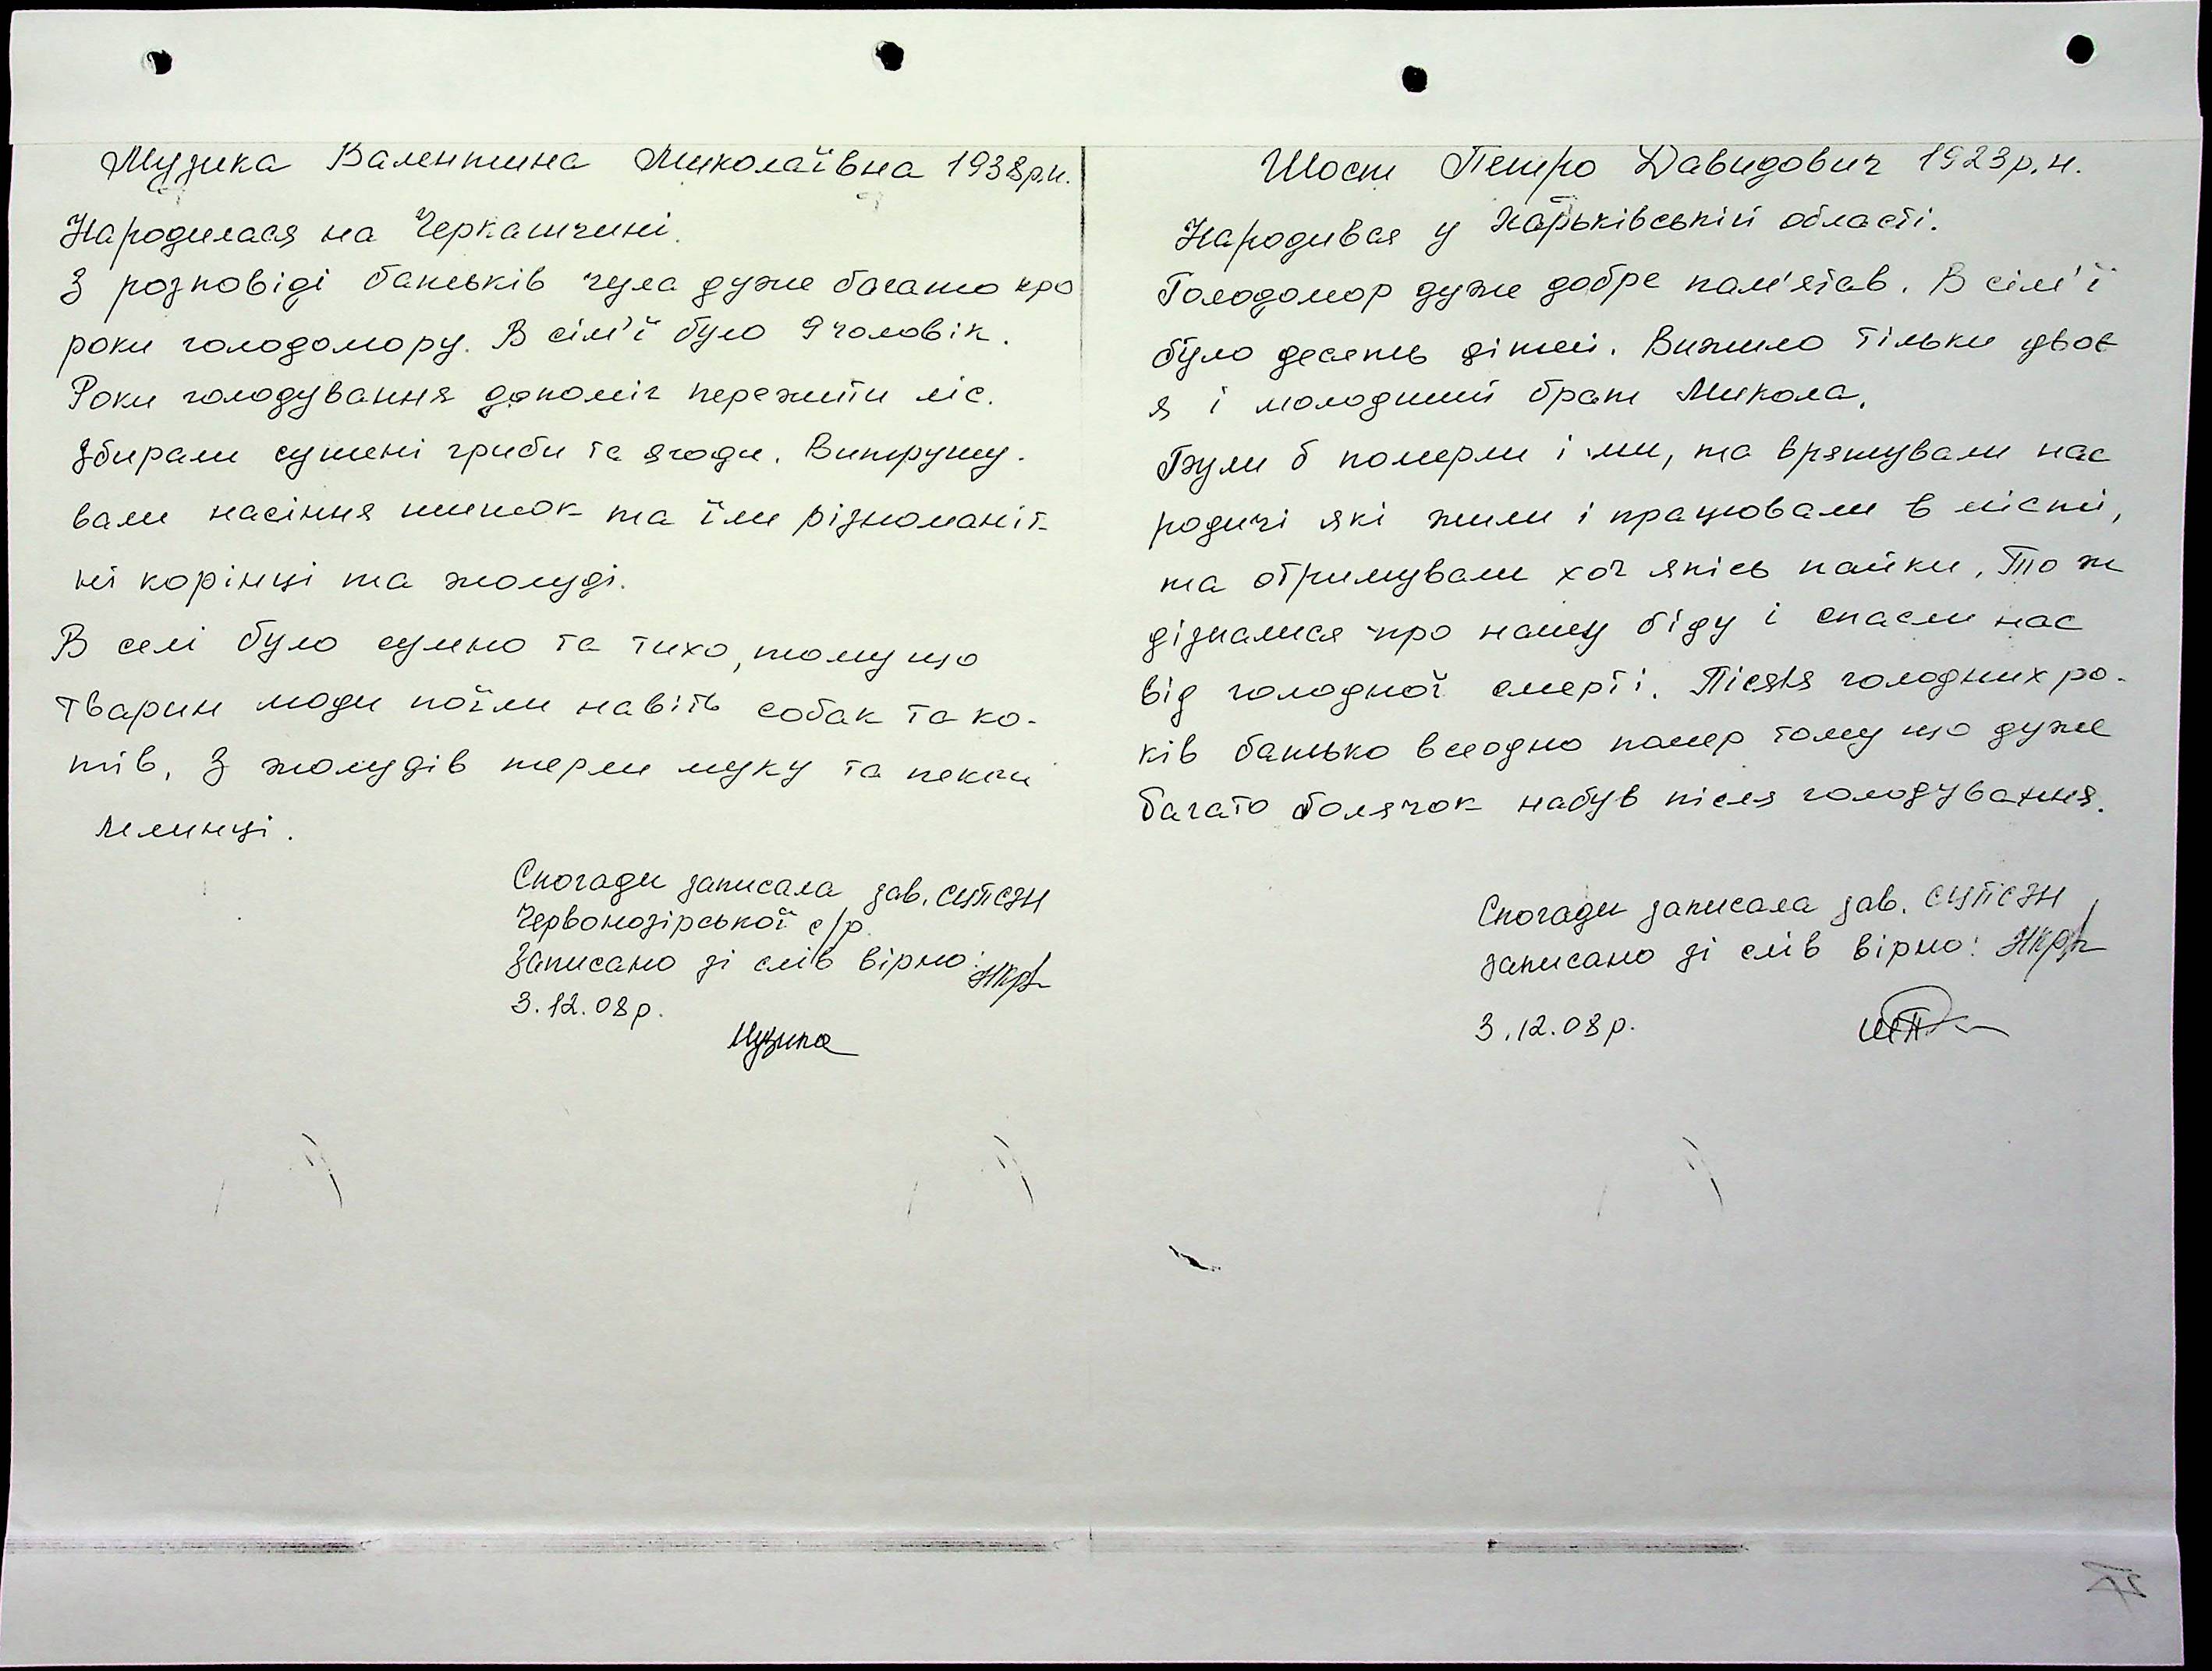 Музика Валентина Миколаївна 1938р.н.
Народилася на Черкащчині.
З розповіді батьків чула дуже багато про
роки голодомору. В сім'ї було 9 чоловік.
Роки голодування допоміг пережити ліс.
Збирали сушені гриби та ягоди. Витрушу-
вали насіння шишок та їли різноманіт-
ні корінці та жолуді.
В селі було сумно та тихо, тому що
тварин люди поїли навіть собак та ко-
тів. З жолудів терли муку та пекли
млинці.
Спогади записала зав. СЦПСЗН
Червонозірської с/р.
Записано зі слів вірно:
3.12.08р.
Музика
Шост Петро Давидович 1923р.н.
Народився у Харьківській області.
Голодомор дуже добре пам'ятав. В сім'ї
було десять дітей. Вижило тільки двоє
я і молодший брат Микола.
Були б померли і ми, та врятували нас
родичі які жили і працювали в місті,
та отримували хоч якісь пайки. То ж
дізналися про нашу біду і спасли нас
від голодної смерті. Після голодних ро-
ків батько всеодно помер тому що дуже
багато болячок набув після голодування.
Спогади записала зав. СЦПСЗН
записано зі слів вірно:
3.12.08р.